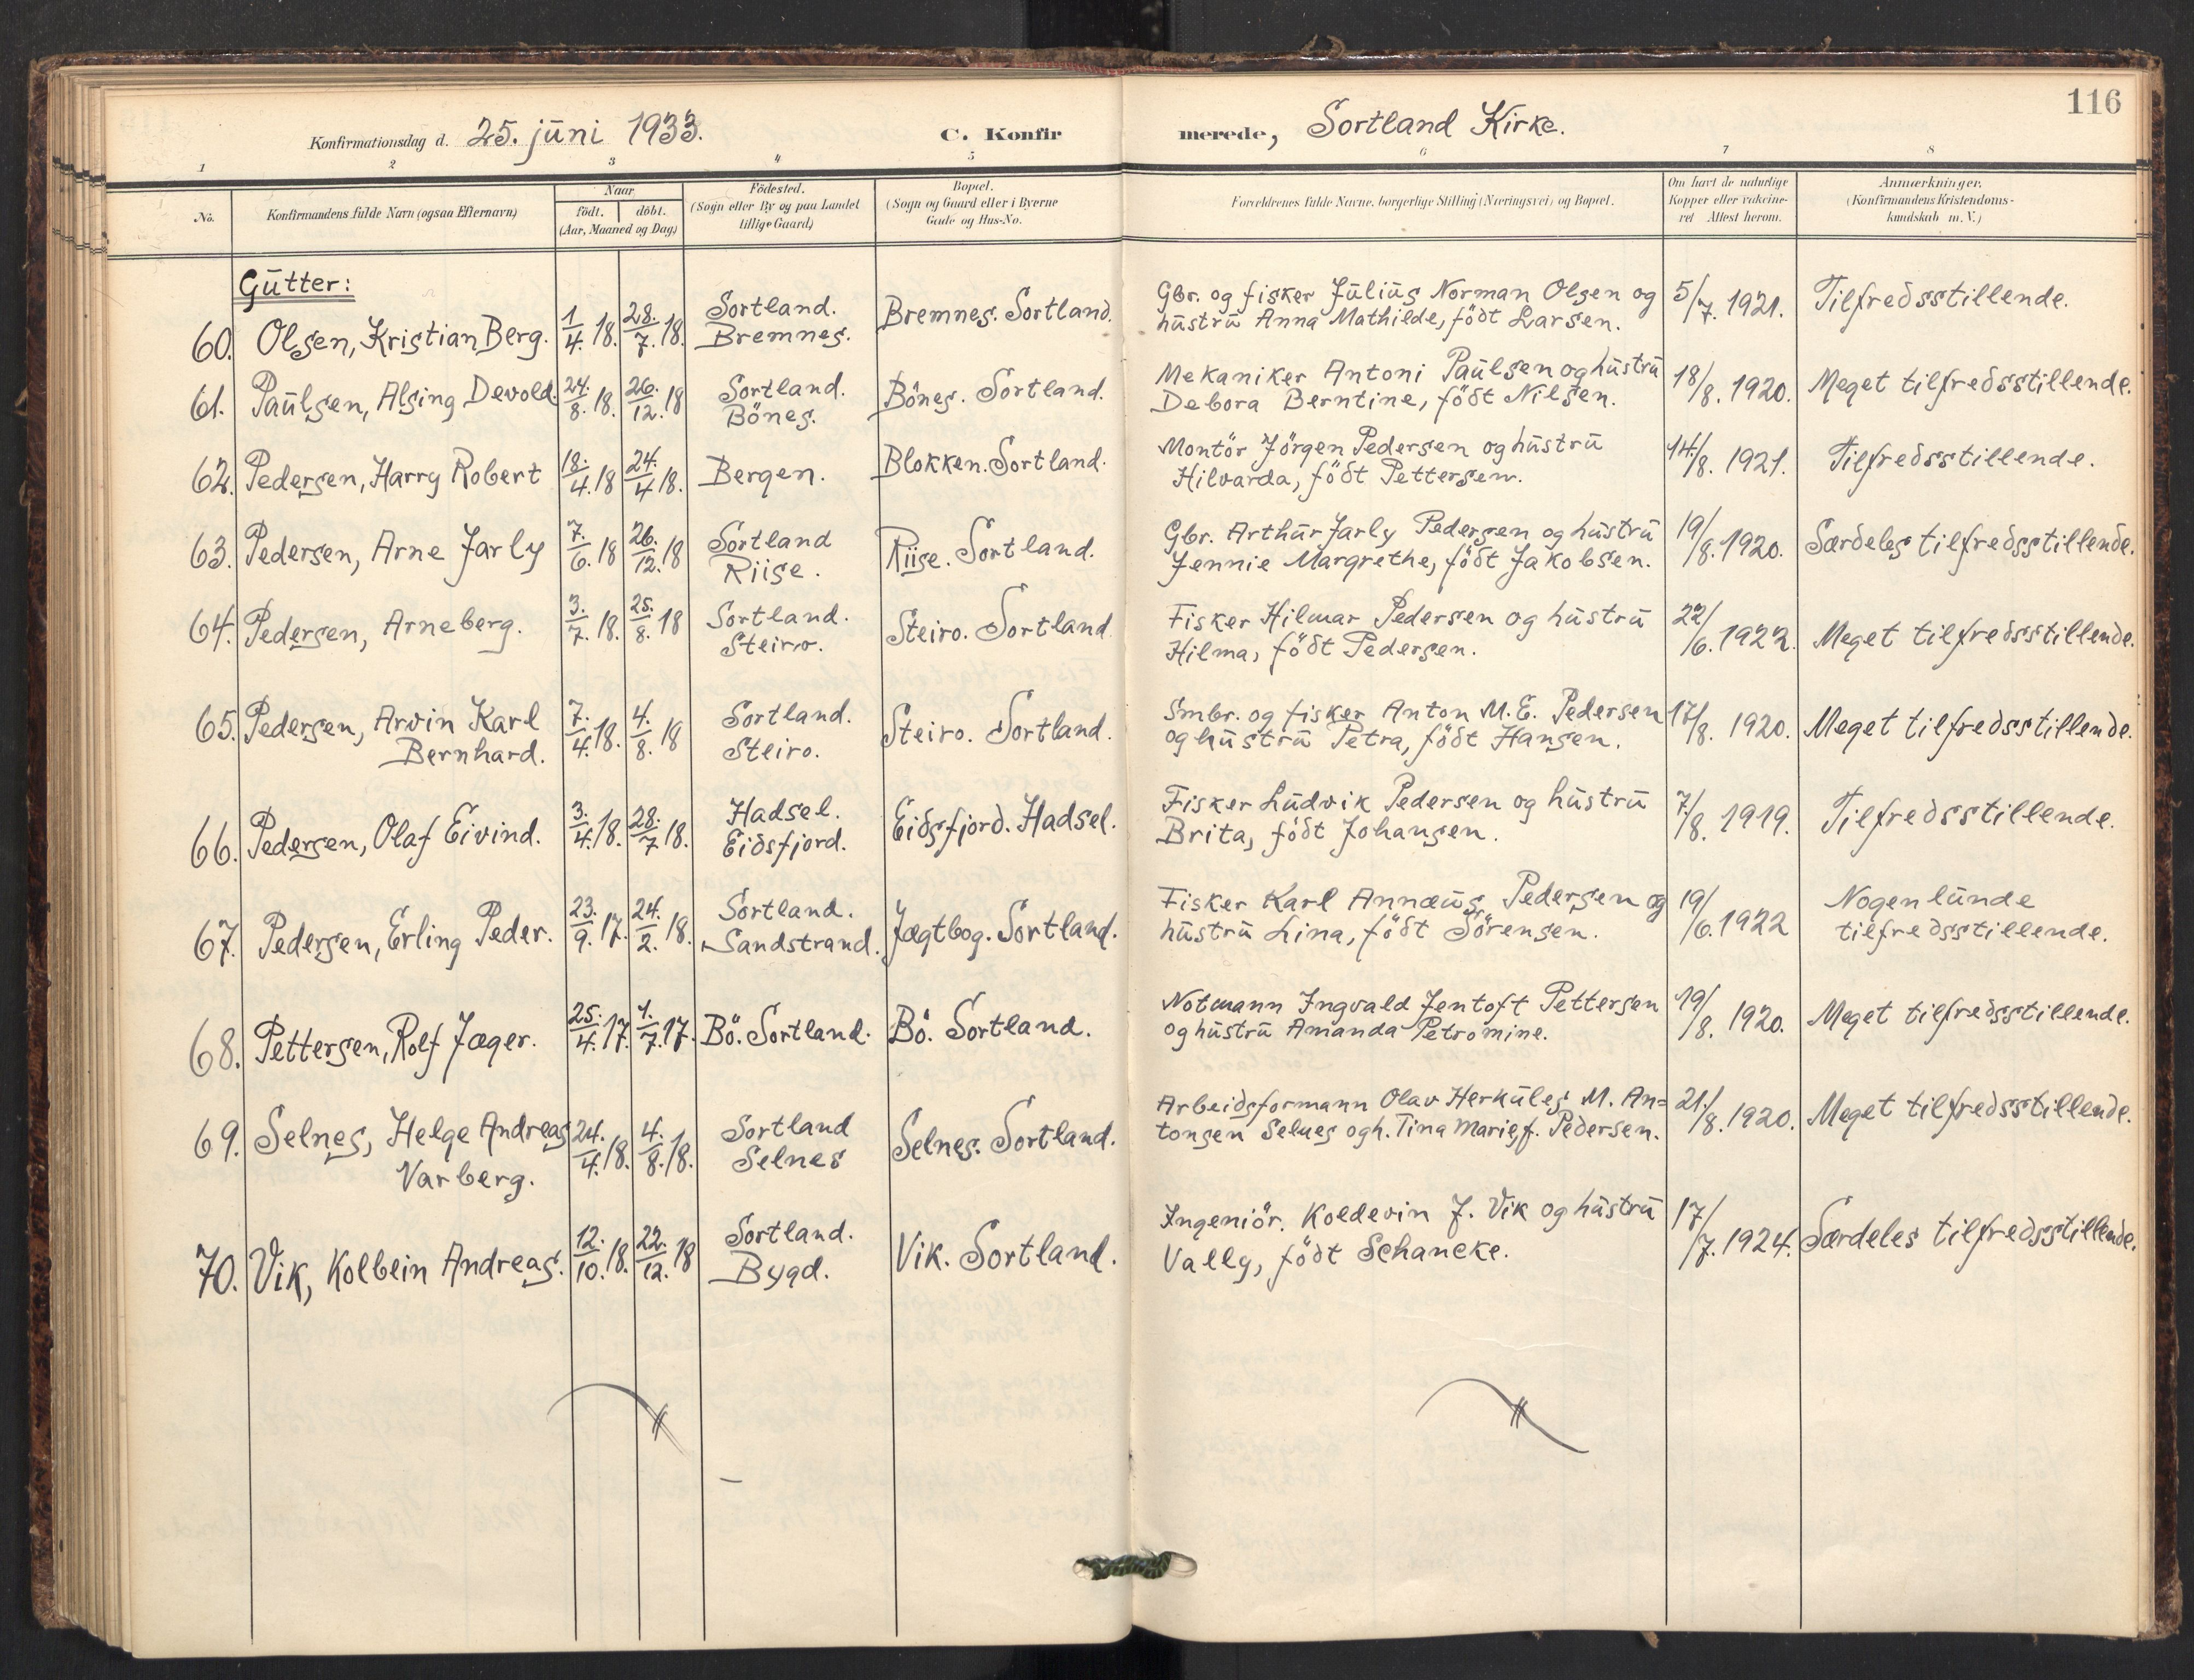 116
Konfirmationsdag d. 25. juni 1933. C. Konfirmerede, Sortland Kirke.
1 2 3 4 5 6 7 8
No.
Konfirmandens fulde Navn (ogsaa Efternavn)
Naar
födt. döbt.
(Aar, Maaned og Dag)
Födested.
(Sogn eller By og paa Landet
tillige Gaard)
Bopæl.
(Sogn og Gaard eller i Byerne
Gade og Hus-No.
Forældrenes fulde Navne, borgerlige Stilling (Næringsvei) og Bopæl.
Om havt de naturlige
Kopper eller vakcine-
ret Attest herom.
Anmærkninger.
(Konfirmandens Kristendoms-
kundskab m. V.)
Gutter:
60. Olsen, Kristian Berg. 1/4. 18. 28./7. 18. Sortland. Bremnes. Bremnes. Sortland. Gbr. og fisker Julius Norman Olsen og
hustru Anna Mathilde, födt Larsen. 5/7. 1921. Tilfredsstillende.
61. Paulsen, Alsing Devold. 24./8. 18. 26./12. 18 Sortland. Bönes. Bönes. Sortland. Mekaniker Antoni Paulsen og hustru
Debora Berntine, födt Nilsen. 18/8. 1920. Meget tilfredsstillende.
62. Pedersen, Harry Robert 18./4. 18 24./4 18. Bergen. Blokken. Sortland. Montör Jörgen Pedersen og hustru
Hilvarda, födt Pettersen. 14./8. 1921. Tilfredsstillende.
63. Pedersen, Arne Jarly 7./6. 18 26./12. 18 Sortland Riise. Riise. Sortland. Gbr. Arthur Jarly Pedersen og hustru
Jennie Margrethe, födt Jakobsen. 19/8. 1920. Særdeles tilfredsstillende.
64. Pedersen, Arneberg. 3./7. 18. 25./8. 18 Sortland. Steiro. Steiro. Sortland. Fisker Hilmar Pedersen og hustru
Hilma, födt Pedersen. 22/6. 1922. Meget tilfredsstillende.
65. Pedersen, Arvin Karl
Bernhard. 7./4. 18. 4./8. 18 Sortland. Steiro. Steiro. Sortland. Smbr. og fisker Anton M. E. Pedersen
og hustru Petra, födt Hansen. 17/8. 1920. Meget tilfredsstillende.
66. Pedersen, Olaf Eivind. 3./4. 18. 28./7 18. Hadsel. Eidsfjord. Eidsfjord. Hadsel. Fisker Ludvik Pedersen og hustru
Brita, födt Johansen. 7/8. 1919. Tilfredsstillende.
67. Pedersen, Erling Peder. 23./9. 17. 24./2. 18. Sortland. Sandstrand. Jægtbog. Sortland. Fisker Karl Annæus Pedersen og
hustru Lina, födt Sörensen. 19/6. 1922 Nogenlunde
tilfredsstillende.
68. Pettersen, Rolf Jæger. 25./4. 17. 1./7. 17. Bö. Sortland. Bö. Sortland. Notmann Ingvald Jentoft Pettersen
og hustru Amanda Petromine. 19/8. 1920. Meget tilfredsstillende.
69. Selnes, Helge Andreas
Varberg. 24./4. 18. 4./8. 18. Sortland Selnes Selnes. Sortland. Arbeidsformann Olav Herkules M. An=
tonsen Selnes og h. Tina Marie, f. Pedersen. 21./8. 1920. Meget tilfredsstillende.
70. Vik, Kolbein Andreas. 12./10. 18. 22./12. 18 Sortland. Bygd. Vik. Sortland. Ingeniör. Koldevin J. Vik og hustru
Vally, födt Schancke. 17/7. 1924. Særdeles tilfredsstillende.